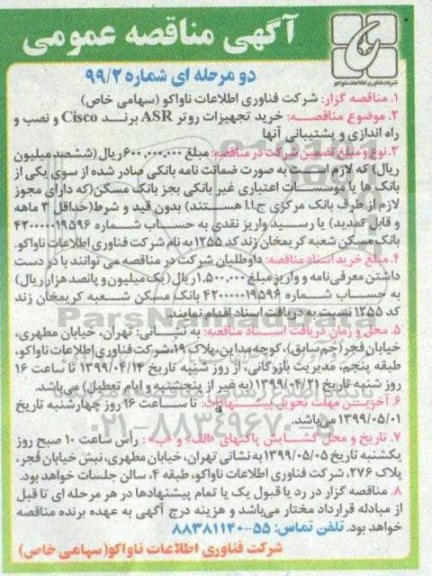 آگهی مناقصه عمومی
شرکت فناوری اطلاعات ناواکو
دو مرحله ای شماره ۹۹/۲
۱. مناقصه گزار: شرکت فناوری اطلاعات ناواکو (سهامی خاص)
۲. موضوع مناقصه: خرید تجهیزات روتر ASR برند Cisco و نصب و
راه اندازی و پشتیبانی آنها
۳. نوع و مبلغ تضمین شرکت در مناقصه: مبلغ ۶۰۰,۰۰۰,۰۰۰ ریال (ششصد میلیون
ریال) که لازم است به صورت ضمانت نامه بانکی صادر شده از سوی یکی از
بانک ها یا موسسات اعتباری غیر بانکی بجز بانک مسکن(که دارای مجوز
لازم از طرف بانک مرکزی ج.ا.ا هستند) بدون قید و شرط(حداقل ۳ ماهه
و قابل تمدید) یا رسید واریز نقدی به حساب شماره ۴۲۰۰۰۰۰۱۹۵۹۶
بانک مسکن شعبه کریمخان زند کد ۱۲۵۵ به نام شرکت فناوری اطلاعات ناواکو.
۴. مبلغ خرید اسناد مناقصه: داوطلبان شرکت در مناقصه می توانند با در دست
داشتن معرفی نامه و واریز مبلغ ۱,۵۰۰,۰۰۰ ریال (یک میلیون و پانصد هزار ریال)
به حساب شماره ۴۲۰۰۰۰۰۱۹۵۹۶ بانک مسکن شعبه کریمخان زند
کد ۱۲۵۵ نسبت به دریافت اسناد اقدام نمایند.
۵. محل و زمان دریافت اسناد مناقصه: به نشانی: تهران، خیابان مطهری،
خیابان فجر(جم سابق)، کوچه مداین، پلاک ۱۹، شرکت فناوری اطلاعات ناواکو،
طبقه پنجم، مدیریت بازرگانی، از روز شنبه تاریخ ۱۳۹۹/۰۴/۱۴ تا ساعت ۱۶
روز شنبه تاریخ ۱۳۹۹/۰۴/۲۱ (به غیر از پنجشنبه و ایام تعطیل) می باشد.
۶. آخرین مهلت تحویل پیشنهادات: تا ساعت ۱۶ روز چهارشنبه تاریخ
۱۳۹۹/۰۵/۰۱ می باشد.
۷. تاریخ و محل گشایش پاکتهای «الف» و «ب»: راس ساعت ۱۰ صبح روز
یکشنبه تاریخ ۱۳۹۹/۰۵/۰۵ به نشانی تهران، خیابان مطهری، نبش خیابان فجر،
پلاک ۲۷۶، شرکت فناوری اطلاعات ناواکو، طبقه ۴، سالن جلسات خواهد بود.
۸. مناقصه گزار در رد یا قبول یک یا تمام پیشنهادها در هر مرحله ای تا قبل
از مبادله قرارداد مختار می باشد و هزینه درج آگهی به عهده برنده مناقصه
خواهد بود. تلفن تماس: ۵۵-۸۸۳۸۱۱۴۰
شرکت فناوری اطلاعات ناواکو(سهامی خاص)
ParsNamadData
۰۲۱-۸۸۳۴۹۶۷۰